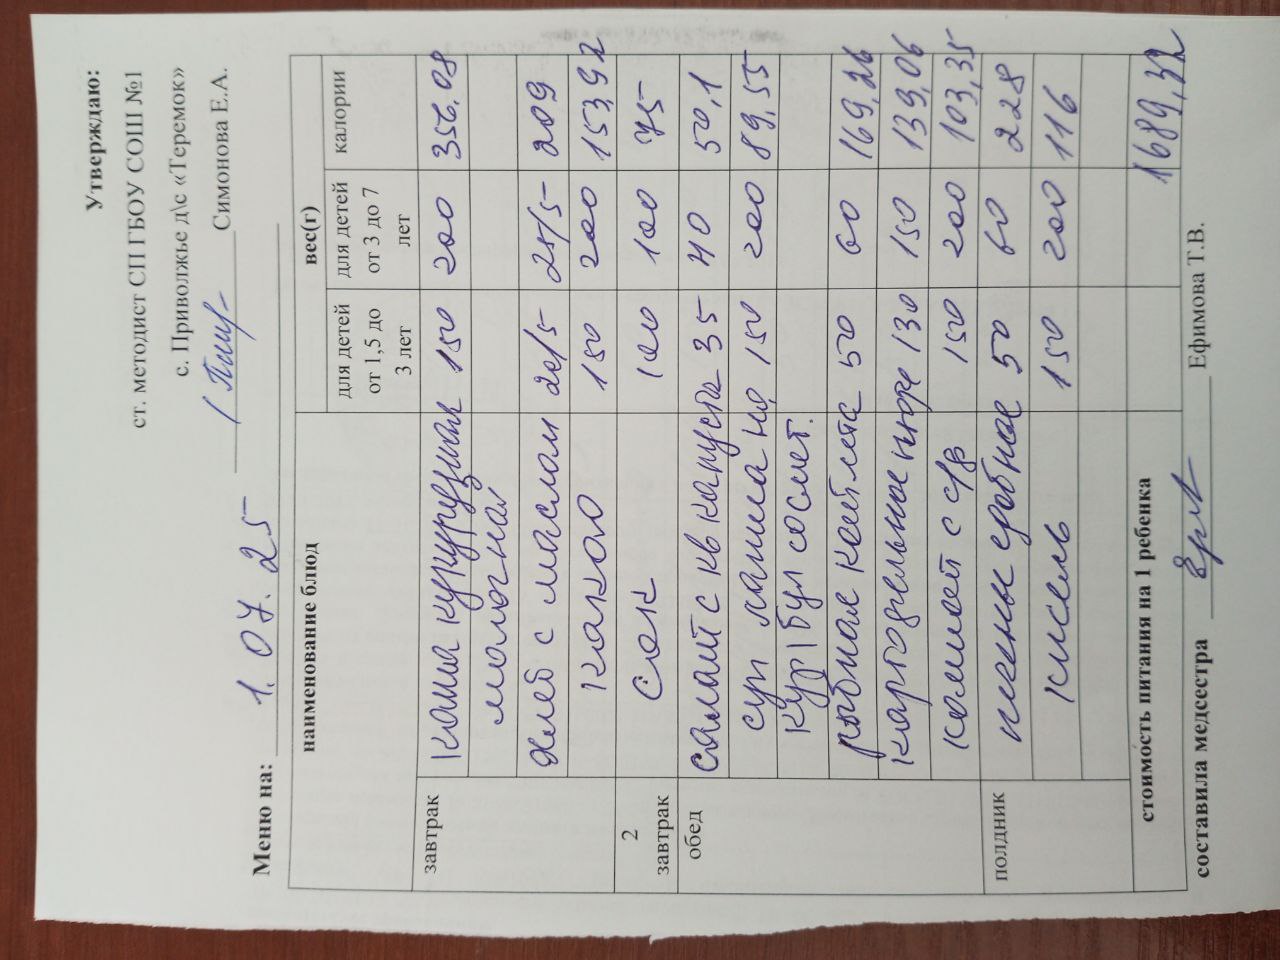 Утверждаю:
ст. методист СП ГБОУ СОШ №1
с. Приволжье д\с «Теремок»
Симонова Е.А.
Меню на: 1.07.25
наименование блюд вес(г) калории
для детей от 1,5 до 3 лет для детей от 3 до 7 лет
завтрак каша кукурузная 150 200 356,08
молочная
хлеб с маслом 20/5 25/5 209
какао 150 200 153,92
2 завтрак сок 100 100 75
обед салат с кв капуста 35 40 50,1
суп лапша на 150 200 89,55
кур бул со смет.
рыбная котлета 50 60 169,26
картофельное пюре 130 150 139,06
компот с с/ф 150 200 103,35
полдник печенье сдобное 50 60 228
кисель 150 200 116
стоимость питания на 1 ребенка 1689,32
составила медсестра Ефимова Т.В.